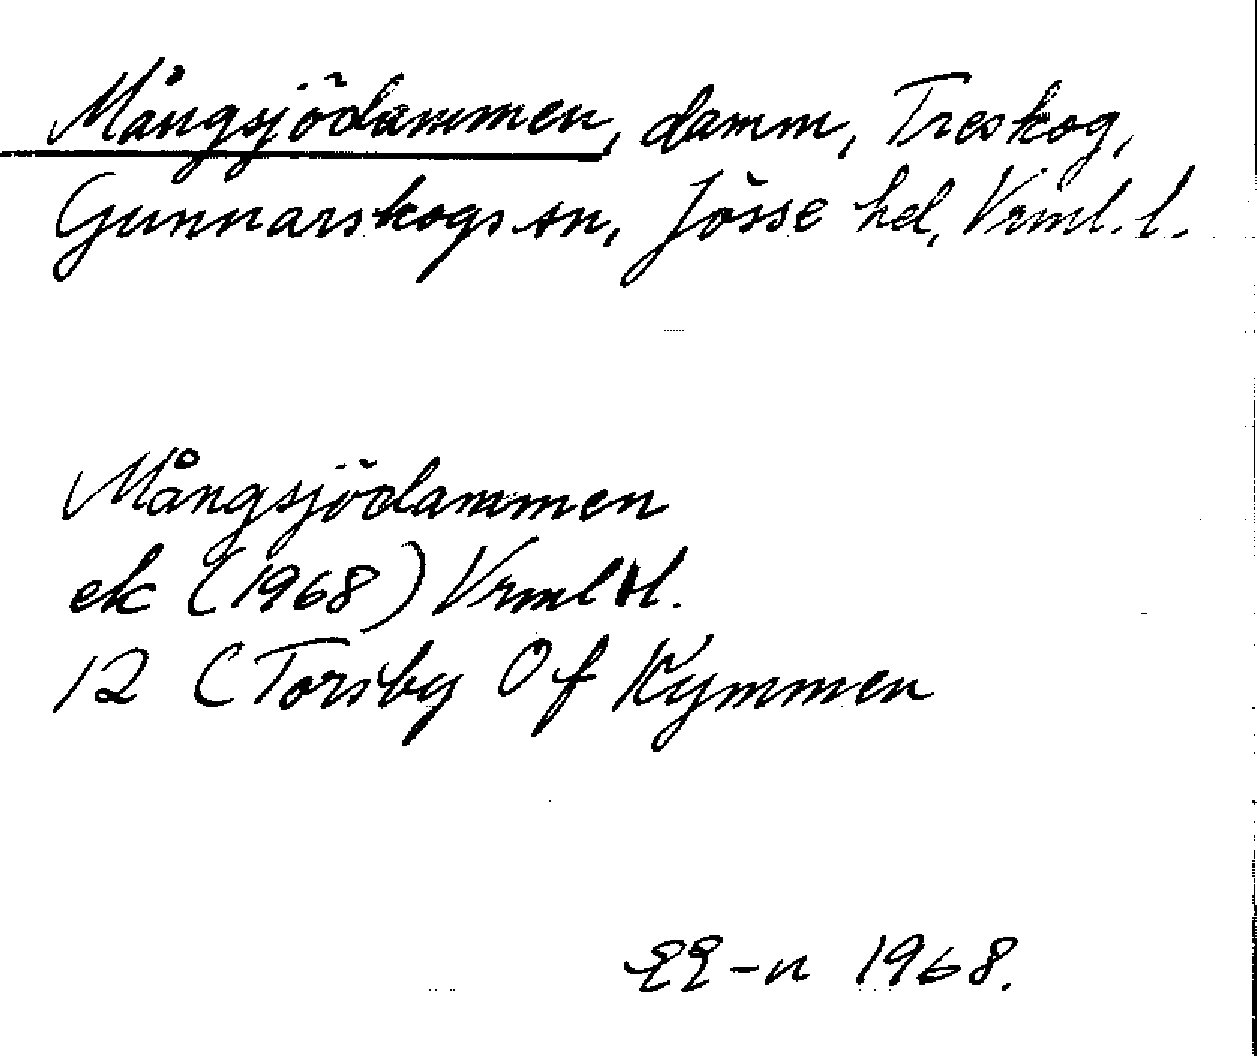 Mångsjödammen, damm, Treskog,
Gunnarskogs sn, Jösse hd, Vrml. l.
Mångsjödammen
ek (1968) Vrml l.
12 C Torsby Of Kymmen
EE-n 1968.